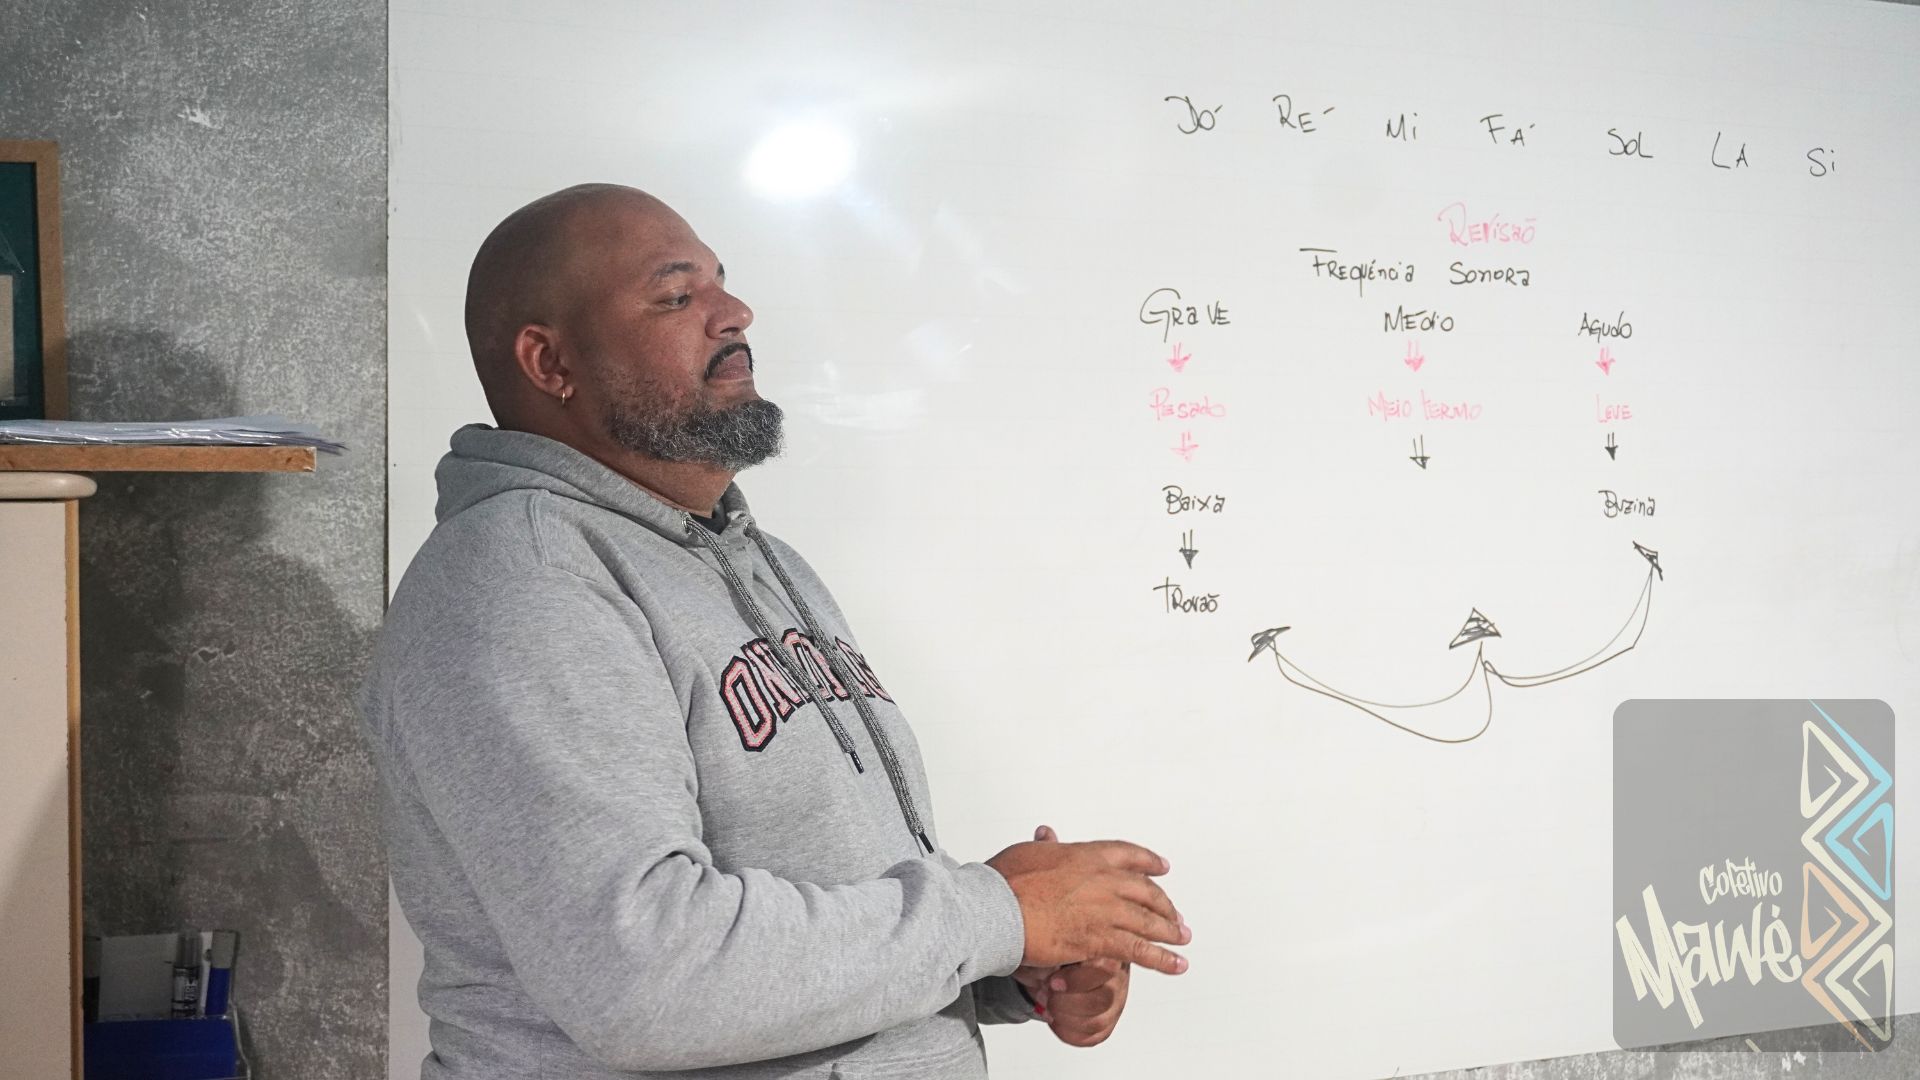 DÓ RÉ Mi FÁ SOL LA Si
Revisão
Frequência Sonora
Grave Médio Agudo
Pesado Meio termo Leve
Baixa Buzina
Trovão
Coletivo
Mawé